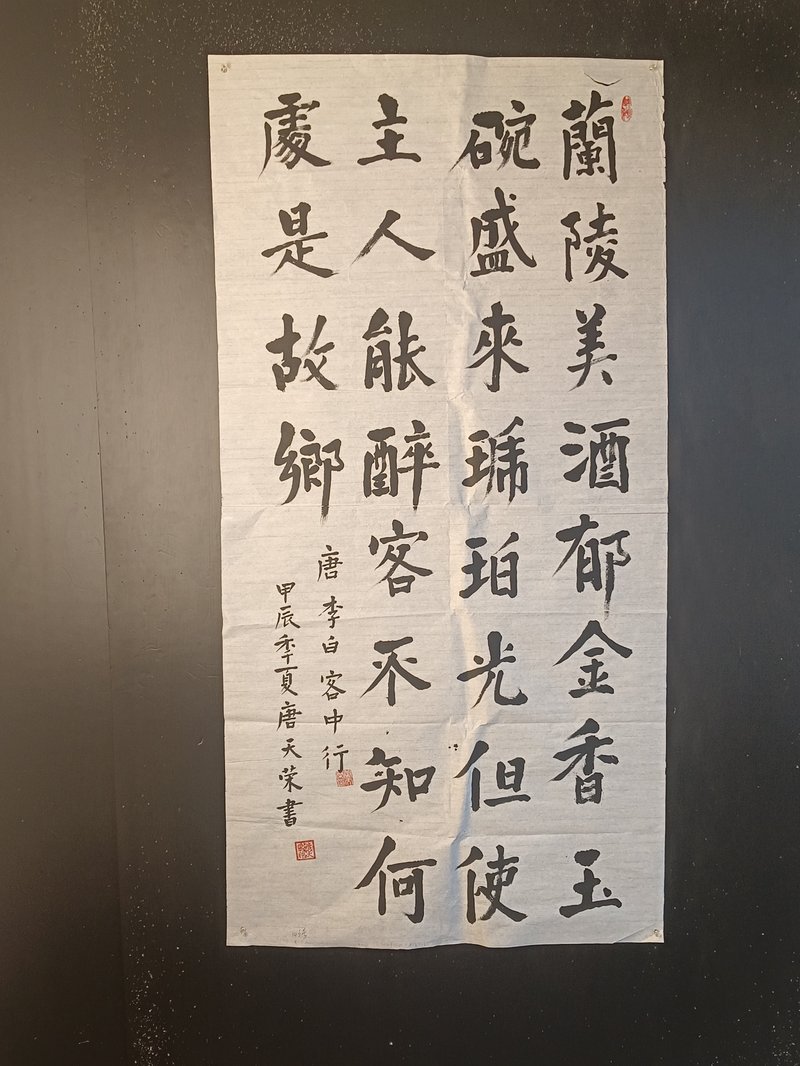 蘭陵美酒郁金香玉
碗盛來琥珀光但使
主人能醉客不知何
處是故鄉
唐李白客中行
甲辰季夏唐天荣書